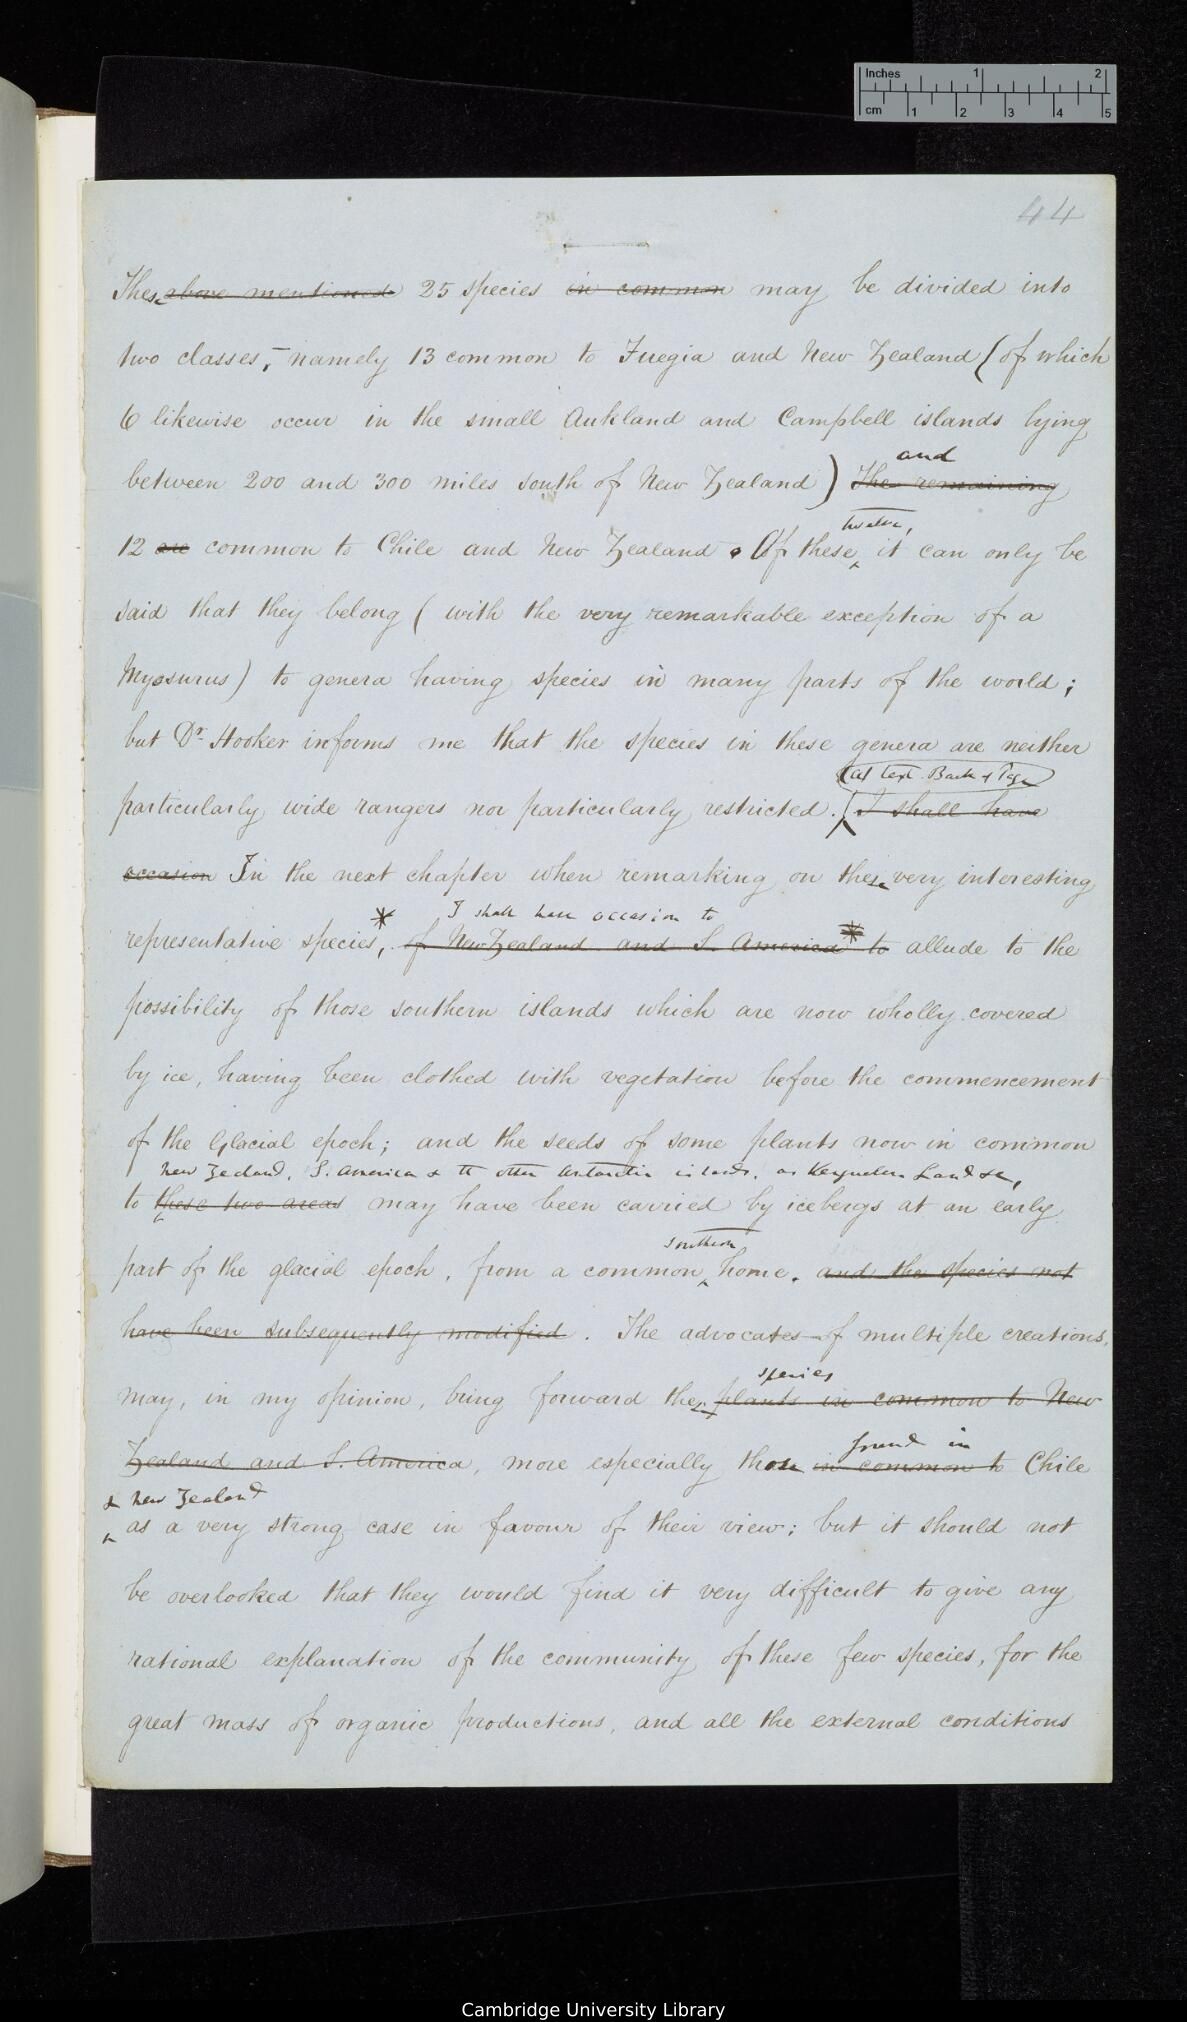 Inches 1 2
cm 1 2 3 4 5
44
These above mentioned 25 species in common may be divided into
two classes, – namely 13 common to Fuegia and New Zealand (of which
6 likewise occur in the small Aukland and Campbell islands lying
and
between 200 and 300 miles south of New Zealand) The remaining
twelve,
12 are common to Chile and New Zealand. Of these it can only be
said that they belong (with the very remarkable exception of a
Myosurus) to genera having species in many parts of the world;
but Dr. Hooker informs me that the species in these genera are neither
(a) text Back of Page
particularly wide rangers nor particularly restricted. (I shall have
occasion In the next chapter when remarking on these very interesting
I shall have occasion to
representative species*, of New Zealand and S. America* to allude to the
possibility of those southern islands which are now wholly covered
by ice, having been clothed with vegetation before the commencement
of the Glacial epoch; and the seeds of some plants now in common
New Zealand, S. America & the other Antarctic islands, as Kerguelen Land &c,
to these two areas may have been carried by icebergs at an early
southern
part of the glacial epoch, from a common home. and the species not
have been subsequently modified. The advocates of multiple creations,
species
may, in my opinion, bring forward these plants in common to New
found in
Zealand and S. America, more especially those in common to Chile
& New Zealand
as a very strong case in favour of their view; but it should not
be overlooked that they would find it very difficult to give any
rational explanation of the community of these few species, for the
great mass of organic productions, and all the external conditions
Cambridge University Library